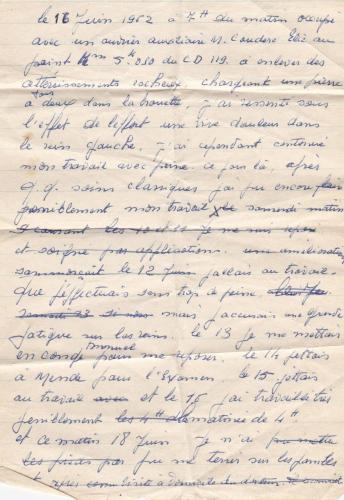 le 18 Juin 1962 à 7H du matin occupé
avec un ouvrier auxiliaire M. Couderc Elie au
point Km 5.010 du CD 119. à enlever des
atterrissements rocheux, chargeant une pierre
à deux dans la brouette, j'ai ressenti sous
l'effet de l'effort une vive douleur dans
le rein gauche. j'ai cependant continué
mon travail avec peine ce jour là, après
q.q. soins classiques j'ai pu encore faire
péniblement mon travail X le samedi matin
les 10 et 11 Je me suis reposé
et soigné par applications. une amélioration
s'annonçait le 12 Juin j'allais au travail.
que j'effectuais sans trop de peine
mais j'accusais une grande
fatigue sur les reins. le 13 je me mettais
en congé annuel pour me reposer. le 14 j'étais
à Mende pour l'Examen. le 15 j'étais
au travail avec et le 16 j'ai travaillé très
péniblement les 4H de matinée de 4H
et ce matin 18 Juin je n'ai pu mettre
les pieds par pu me tenir sur les jambes
et après visite à domicile du docteur